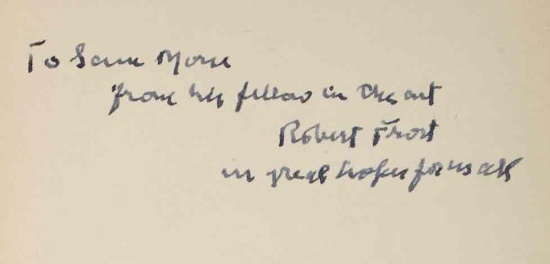 To Sam Morse
from his fellow in the art
Robert Frost
in great hopes for us all